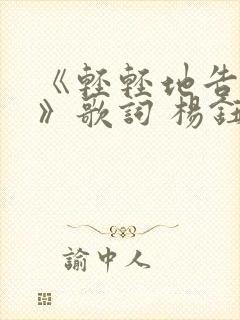 《輕輕地告
》歌詞 楊鈺
諭中人